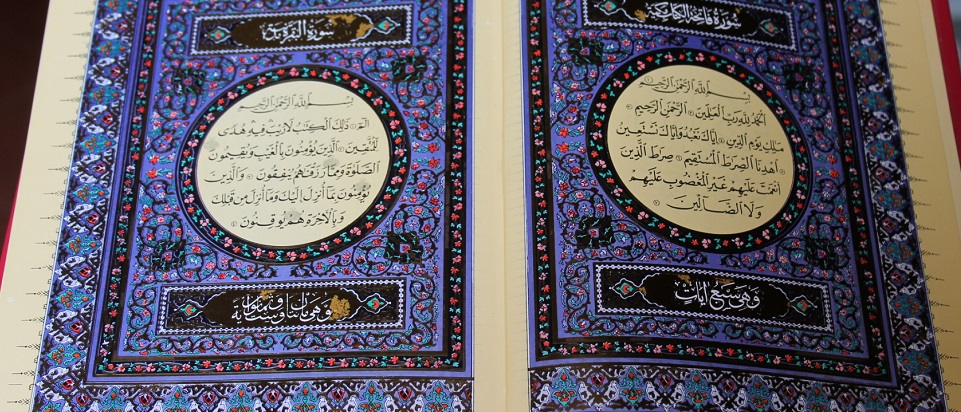 سُورَةُ فَاتِحَةِ الكتاب
بِسْمِ اللَّهِ الرَّحْمَٰنِ الرَّحِيمِ ١
الْحَمْدُ لِلَّهِ رَبِّ الْعَٰلَمِينَ ٢ الرَّحْمَٰنِ الرَّحِيمِ ٣
مَٰلِكِ يَوْمِ الدِّينِ ٤ إِيَّاكَ نَعْبُدُ وَإِيَّاكَ نَسْتَعِينُ ٥
اهْدِنَا الصِّرَٰطَ الْمُسْتَقِيمَ ٦ صِرَٰطَ الَّذِينَ
أَنْعَمْتَ عَلَيْهِمْ غَيْرِ الْمَغْضُوبِ عَلَيْهِمْ
وَلَا الضَّالِّينَ ٧
وَهِيَ سَبْعُ آيَاتٍ
سُورَةُ الْبَقَرَةِ
بِسْمِ اللَّهِ الرَّحْمَٰنِ الرَّحِيمِ
الٓمٓ ١ ذَٰلِكَ الْكِتَٰبُ لَا رَيْبَ فِيهِ هُدًى
لِلْمُتَّقِينَ ٢ الَّذِينَ يُؤْمِنُونَ بِالْغَيْبِ وَيُقِيمُونَ
الصَّلَوٰةَ وَمِمَّا رَزَقْنَٰهُمْ يُنْفِقُونَ ٣ وَالَّذِينَ
يُؤْمِنُونَ بِمَا أُنْزِلَ إِلَيْكَ وَمَا أُنْزِلَ مِنْ قَبْلِكَ
وَبِالْآخِرَةِ هُمْ يُوقِنُونَ ٤
وَهِيَ مائتان وست وثمانون آية